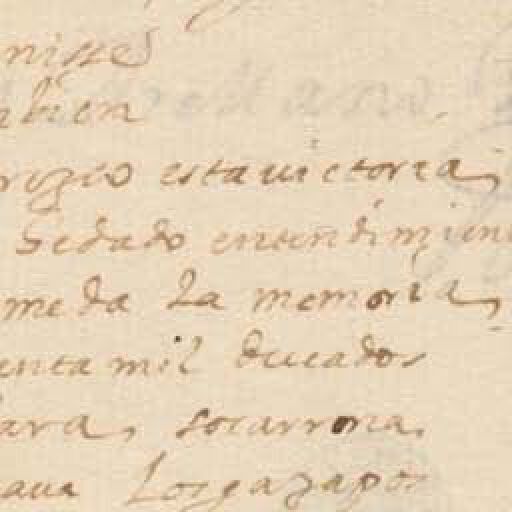 nisse
bien
rozco estauictoria,
sedado entendimien
me da la memoria,
enta mil ducados
ara, socarrona,
aua los gazapos